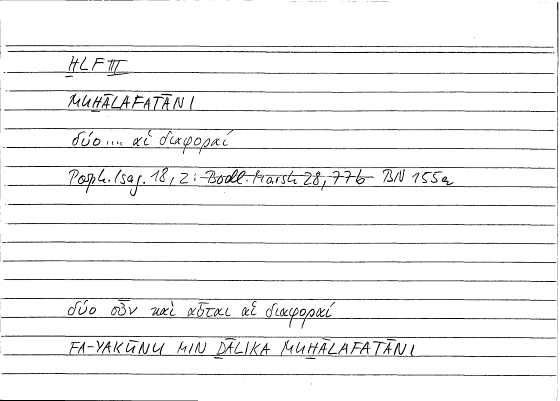 H̱LF III
MUH̱ĀLAFATĀNI
δύο .... αἱ διαφοραί
Porph. Isag. 18, 2: Bodl. Marsh 28, 77b BN 155a
δύο οὖν καὶ αὗται αἱ διαφοραί
FA-YAKŪNU MIN ḎĀLIKA MUH̱ĀLAFATĀNI